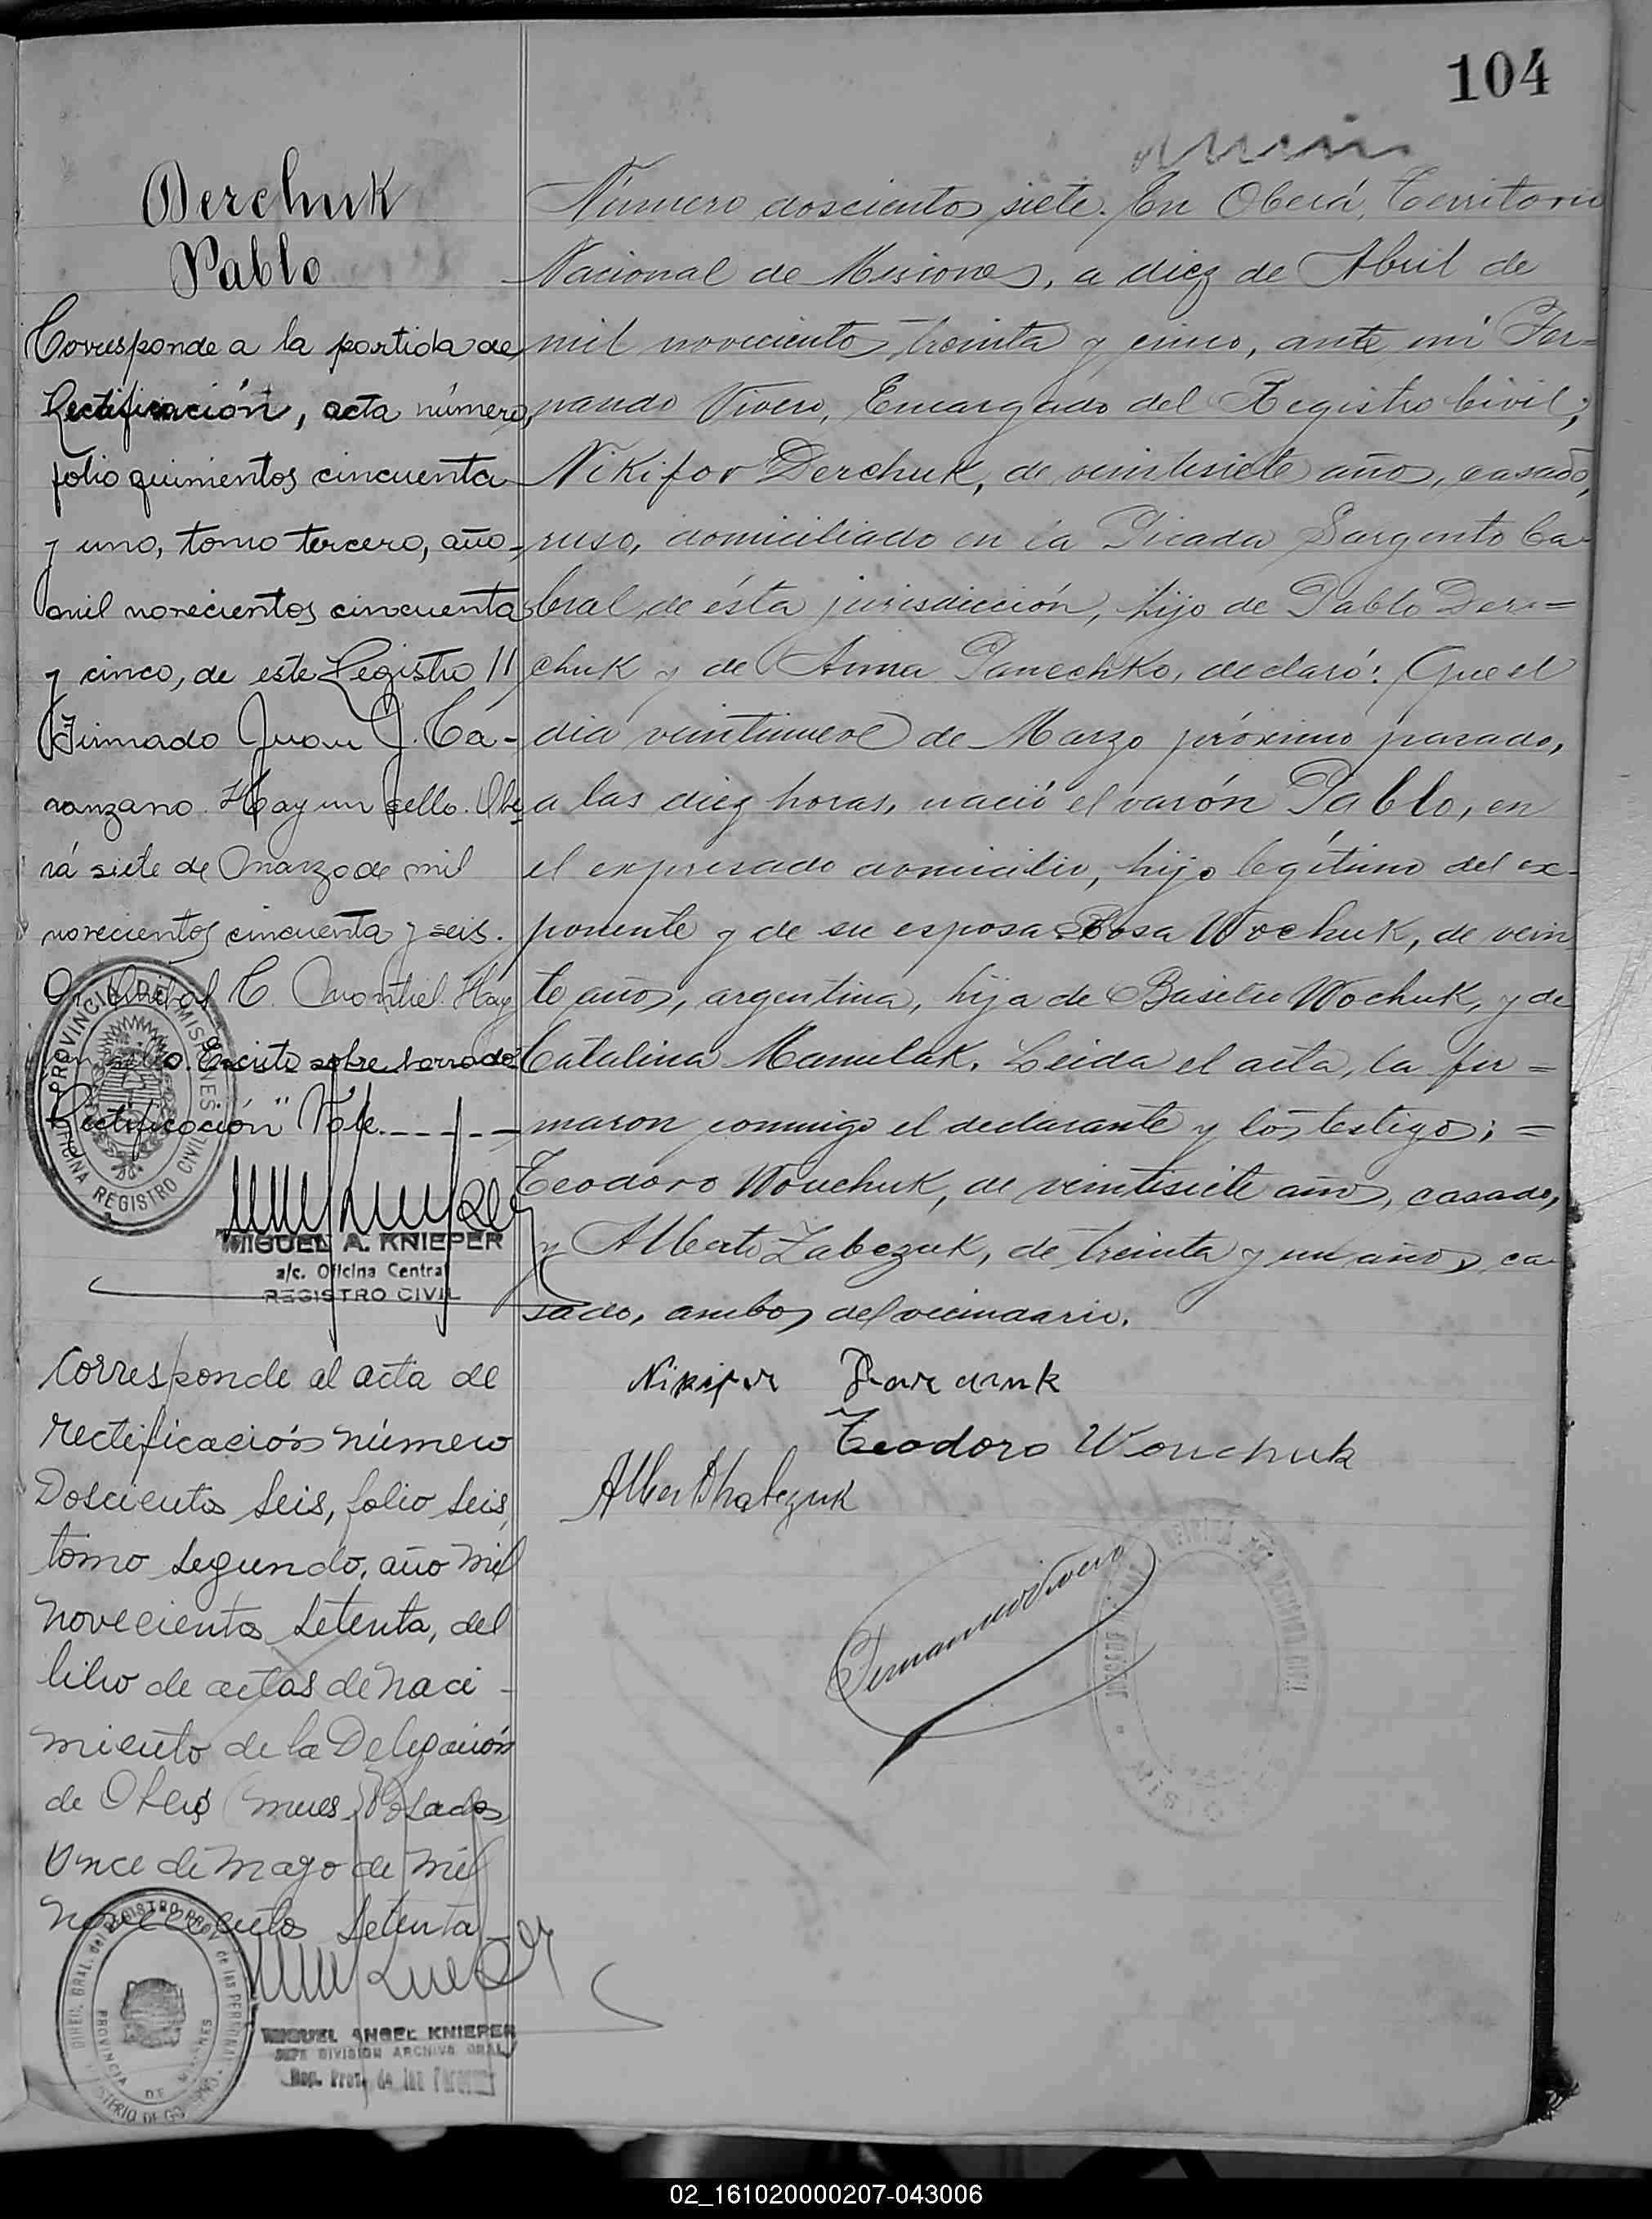 104
Derchuk
Pablo
Corresponde a la partida de
Rectificación, acta número,
folio quinientos cincuenta
y uno, tomo tercero, año
mil novecientos cincuenta
y cinco, de este Registro
Firmado Juan J. Ca-
ranzano. Hay un sello. Obe
rá siete de Marzo de mil
novecientos cincuenta y seis.
C. Montiel. Hay
un sello. Escrito sobre borrado
"Rectificación" Vale.
PROVINCIA DE MISIONES
OFICINA REGISTRO CIVIL
MIGUEL A. KNIEPER
a/c. Oficina Central
REGISTRO CIVIL
Corresponde al acta de
rectificación número
Doscientos seis, folio seis,
tomo segundo, año mil
novecientos setenta, del
libro de actas de naci-
miento de la Delegación
de Oberá (mnes) Posadas
Once de Mayo de mil
novecientos setenta
DIREC. GRAL. del REGISTRO PROV. de las PERSONAS
PROVINCIA DE MISIONES
MINISTERIO DE GOBIERNO
MIGUEL ANGEL KNIEPER
JEFE DIVISION ARCHIVO GRAL
Reg. Prov. de las Personas
Número doscientos siete. En Oberá, Territorio
Nacional de Misiones, a diez de Abril de
mil novecientos treinta y cinco, ante mi Fer=
nando Vivero, Encargado del Registro Civil;
Nikifor Derchuk, de veintisiete años, casado,
ruso, domiciliado en la Picada Sargento Ca-
bral, de ésta jurisdicción, hijo de Pablo Der=
chuk y de Anna Panechko, declaró: Que el
dia veintinueve de Marzo próximo pasado,
a las diez horas, nació el varón Pablo, en
el expresado domicilio, hijo legítimo del ex-
ponente y de su esposa Rosa Wochuk, de vein
te años, argentina, hija de Basilio Wochuk, y de
Catalina Mamulak. Leida el acta, la fir=
maron conmigo el declarante y los testigos; =
Teodoro Wouchuk, de veintisiete años, casado,
y Alberto Zabczuk, de treinta y un años, ca-
sado, ambos del vecindario.
Teodoro Wouchuk
Fernando Vivero
02_161020000207-043006